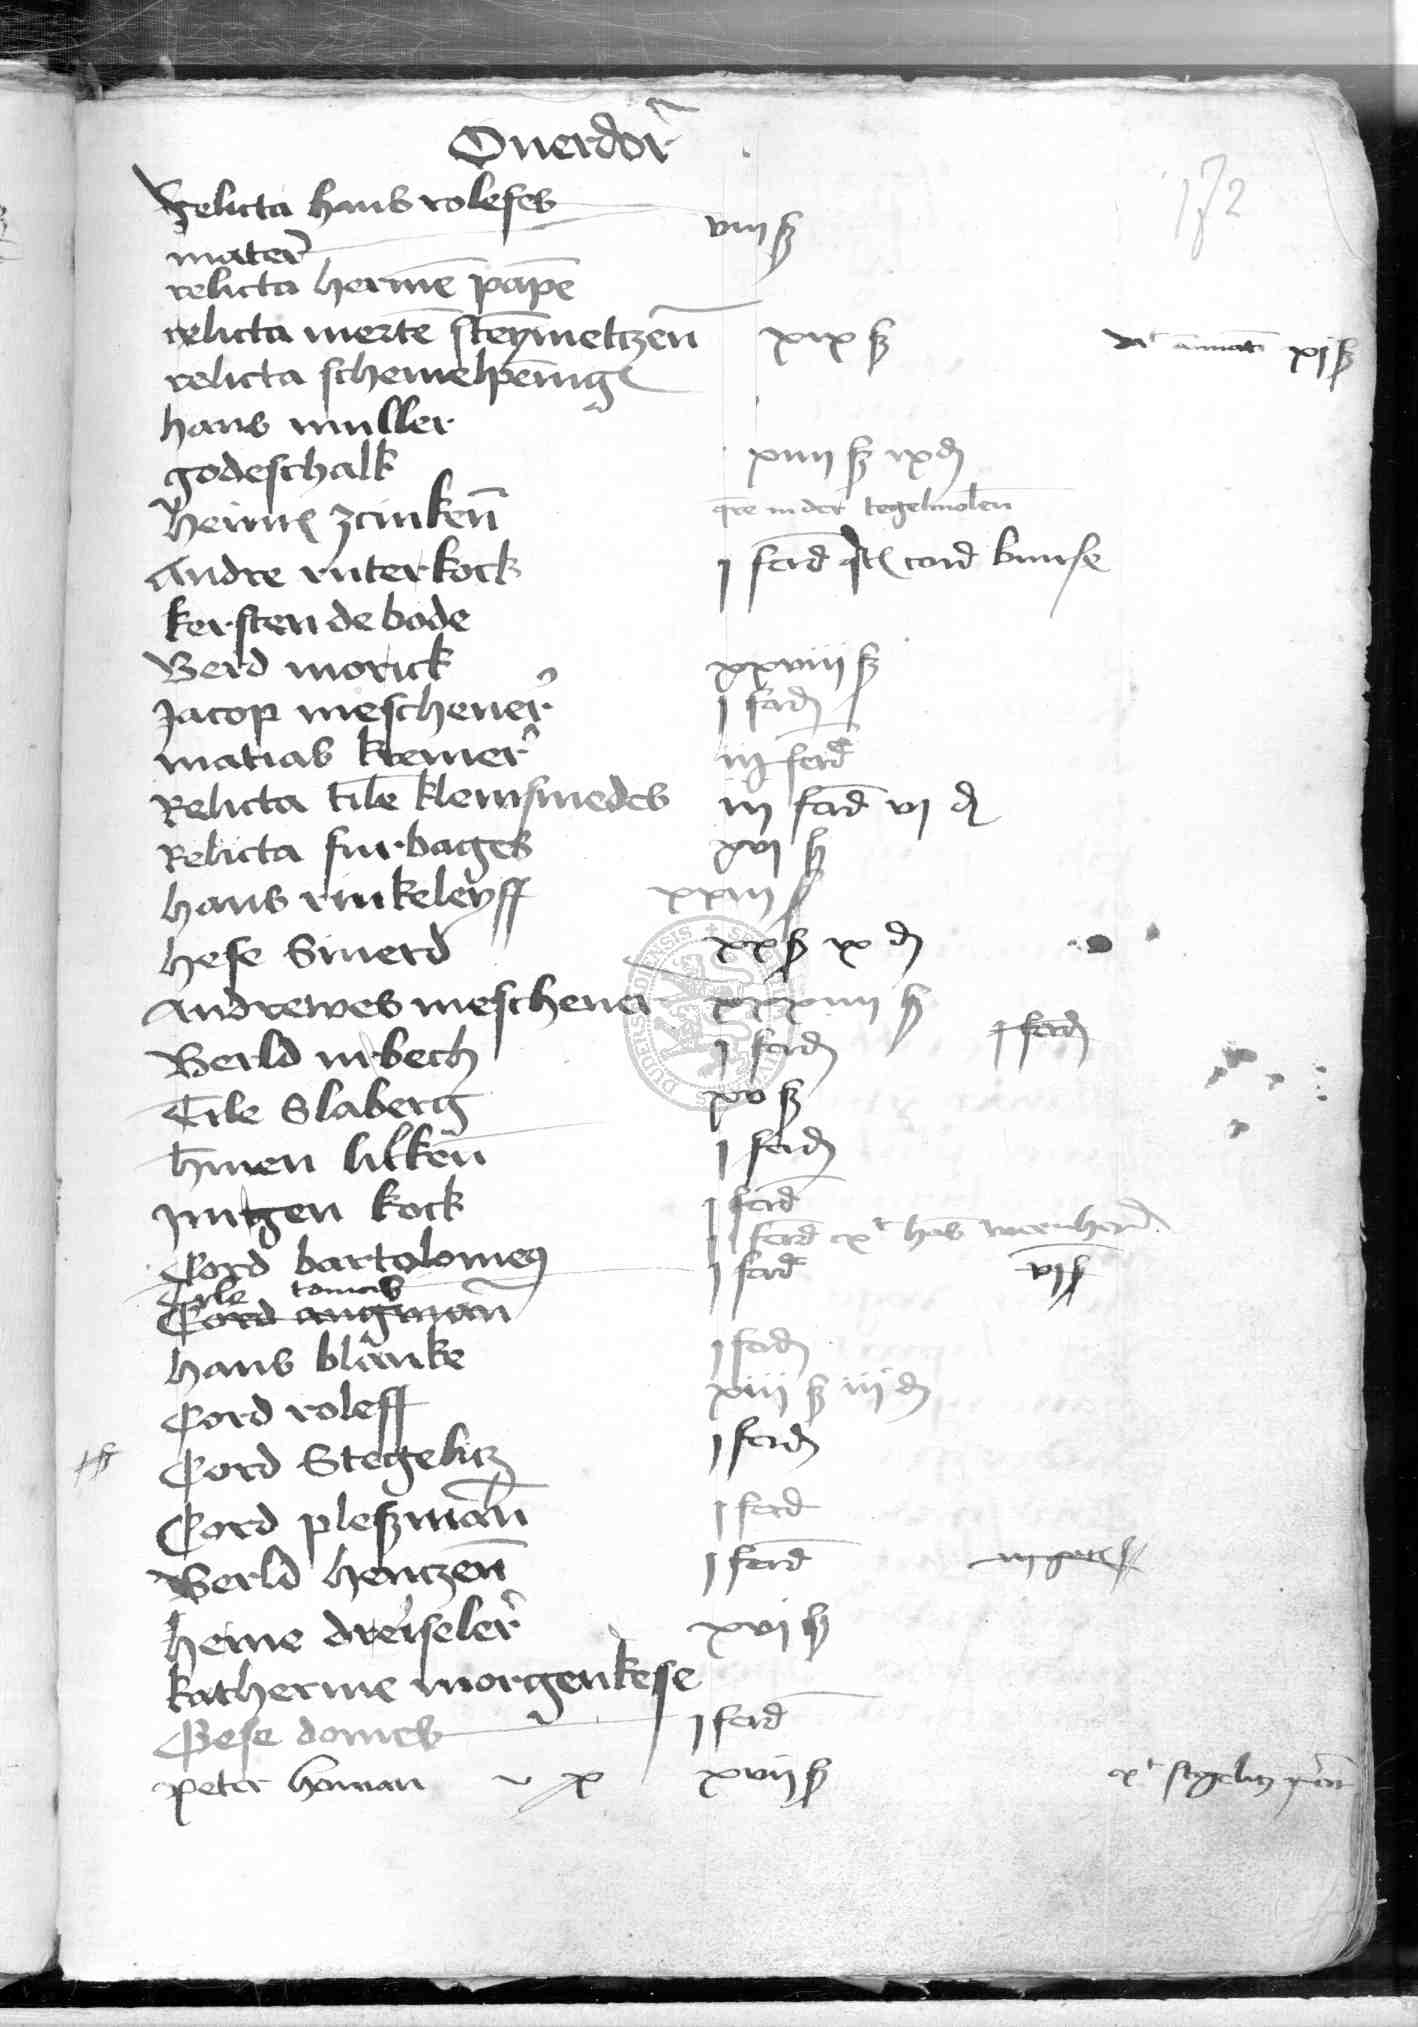 Ouerdor
172
Relicta hans rolefes
mater viii ß
relicta herme pape
relicta merte steymetzen xix ß xj ß
relicta schemelpening
hans muller
godeschalk xiiii ß ix d
heinr zcinken qre in der tegelmolen
Andre ruterkock j ferd cord burse
kersten de bode
Berd morick xxviii ß
Jacop meschener j ferd
matias kremer iij ferd
Relicta tile klensmedes iij ferd vj d
Relicta surbages xvi ß
hans rinkeleyff xxiii ß
hese Siuerd xx ß ix d
Andrewes meschener xxxiiii ß
Berld inbech j ferd j ferd
Tile Slaberg xv ß
hmen lilken j ferd
jungen kock j ferd
j ferd hans
Cord bartolomeus j ferd vi ß
Tile tomas
Cord angman
hans blanke j ferd
Cord roleff xiii ß iii d
Cord Stegelitz j ferd
Cord pleßman j ferd
Berld hentzen j ferd
heine dreiseler xvi ß
katherine morgenkese
Gese domes j ferd
peter homan v x xvii ß stegelitz